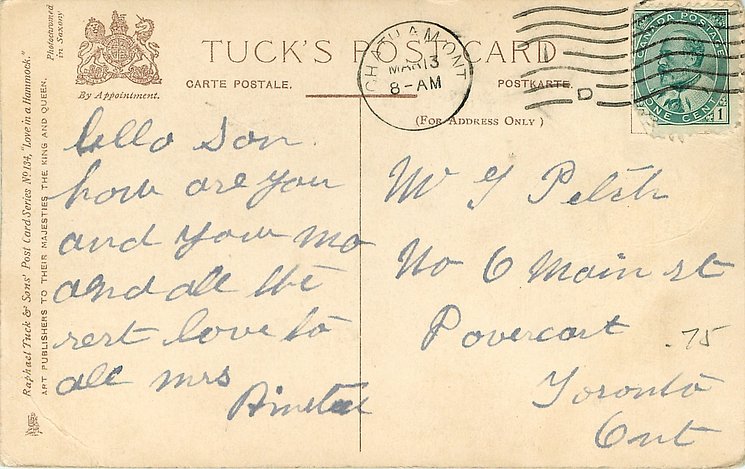 Photochromed
in Saxony
By Appointment.
TUCK'S POST CARD
CARTE POSTALE.
POSTKARTE.
(FOR ADDRESS ONLY)
CHATHAM ONT
MAR 13
8-AM
D
CANADA POSTAGE
ONE CENT
1
Raphael Tuck & Sons' Post Card Series No 134, "Love in a Hammock."
ART PUBLISHERS TO THEIR MAJESTIES THE KING AND QUEEN.
hello Son
how are you
and your mo
and all the
rest love to
all mrs
Mr
No 6 Main st
.75
Toronto
Ont